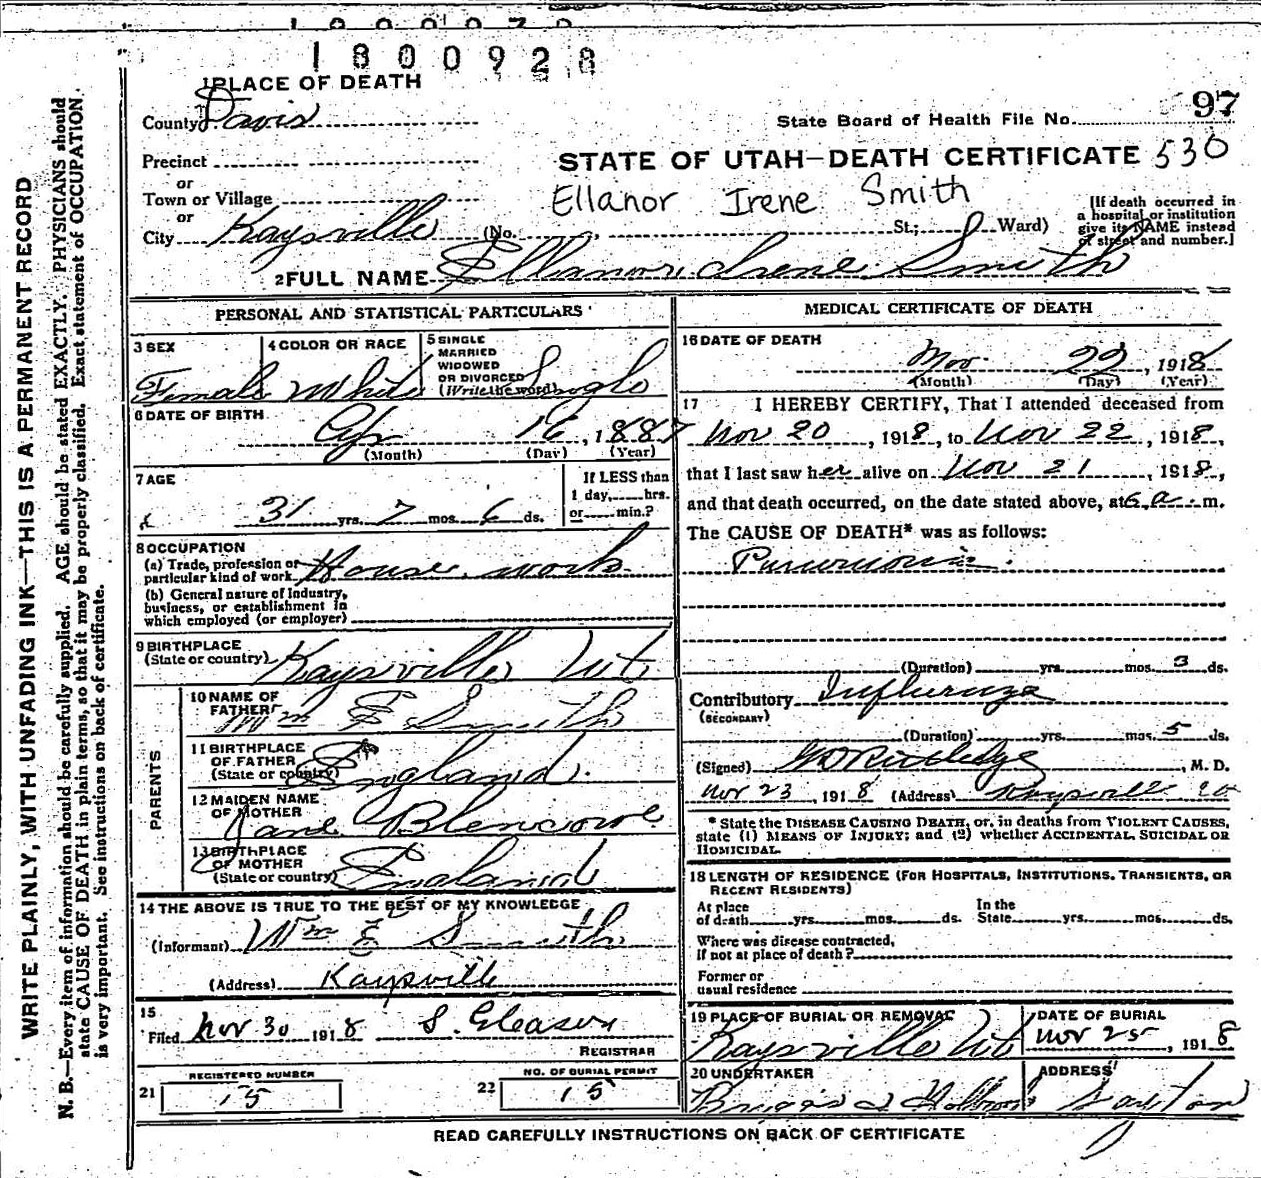 1800928
1 PLACE OF DEATH
County Davis
State Board of Health File No. 97
Precinct
STATE OF UTAH—DEATH CERTIFICATE 530
or
Town or Village
Ellanor Irene Smith
or
City Kaysville (No. , St.; Ward)
[If death occurred in
a hospital or institution
give its NAME instead
of street and number.]
2 FULL NAME Ellanor Irene Smith
PERSONAL AND STATISTICAL PARTICULARS
3 SEX
Female
4 COLOR OR RACE
White
5 SINGLE
MARRIED
WIDOWED
OR DIVORCED
(Write the word)
Single
6 DATE OF BIRTH
Ap 16, 1887
(Month) (Day) (Year)
7 AGE
31 yrs. 7 mos. 6 ds.
If LESS than
1 day, hrs.
or min.?
8 OCCUPATION
(a) Trade, profession or
particular kind of work House work
(b) General nature of industry,
business, or establishment in
which employed (or employer)
9 BIRTHPLACE
(State or country) Kaysville Ut
PARENTS
10 NAME OF
FATHER Wm E Smith
11 BIRTHPLACE
OF FATHER
(State or country) England.
12 MAIDEN NAME
OF MOTHER Jane Blencowe
13 BIRTHPLACE
OF MOTHER
(State or country) England
14 THE ABOVE IS TRUE TO THE BEST OF MY KNOWLEDGE
(Informant) Wm E Smith
(Address) Kaysville
15
Filed Nov 30 1918 S. Gleason
REGISTRAR
21 REGISTERED NUMBER
15
22 NO. OF BURIAL PERMIT
15
MEDICAL CERTIFICATE OF DEATH
16 DATE OF DEATH
Nov 22, 1918
(Month) (Day) (Year)
17 I HEREBY CERTIFY, That I attended deceased from
Nov 20, 1918, to Nov 22, 1918,
that I last saw her alive on Nov 21, 1918,
and that death occurred, on the date stated above, at 6 a. m.
The CAUSE OF DEATH* was as follows:
Pneumonia.
(Duration) yrs. mos. 3 ds.
Contributory Influenza
(SECONDARY)
(Duration) yrs. mos. 5 ds.
(Signed) Rutledge, M. D.
Nov 23, 1918 (Address) Kaysville
* State the DISEASE CAUSING DEATH, or, in deaths from VIOLENT CAUSES,
state (1) MEANS OF INJURY; and (2) whether ACCIDENTAL, SUICIDAL OR
HOMICIDAL.
18 LENGTH OF RESIDENCE (FOR HOSPITALS, INSTITUTIONS, TRANSIENTS, OR
RECENT RESIDENTS)
At place
of death yrs. mos. ds.
In the
State yrs. mos. ds.
Where was disease contracted,
if not at place of death?
Former or
usual residence
19 PLACE OF BURIAL OR REMOVAL
Kaysville Ut
DATE OF BURIAL
Nov 25, 1918
20 UNDERTAKER
ADDRESS
Layton
READ CAREFULLY INSTRUCTIONS ON BACK OF CERTIFICATE
WRITE PLAINLY, WITH UNFADING INK—THIS IS A PERMANENT RECORD
N. B.—Every item of information should be carefully supplied. AGE should be stated EXACTLY. PHYSICIANS should
state CAUSE OF DEATH in plain terms, so that it may be properly classified. Exact statement of OCCUPATION
is very important. See instructions on back of certificate.